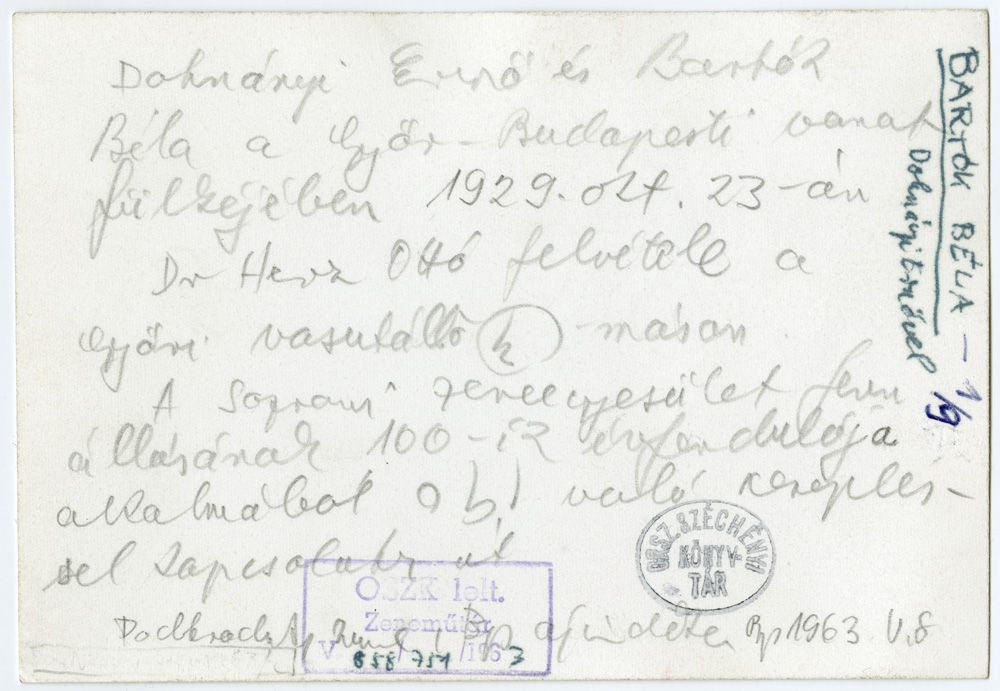 Dohnányi Ernő és Bartók
Béla a Győr-Budapesti vonat
fülkéjében 1929. okt. 23-án
Dr Herz Ottó felvétele a
Győri vasutálló másan
A Soproni zeneegyesület fenn
állásának 100-ik évfordulója
alkalmából való szereplés-
sel kapcsolatb. út
Bp 1963 V. 8
OSZK lelt.
Zeneműtár
V 858/751/1963
ORSZ. SZÉCHÉNYI
KÖNYV-
TÁR
BARTÓK BÉLA - 1/9
Dohnányi Ernővel